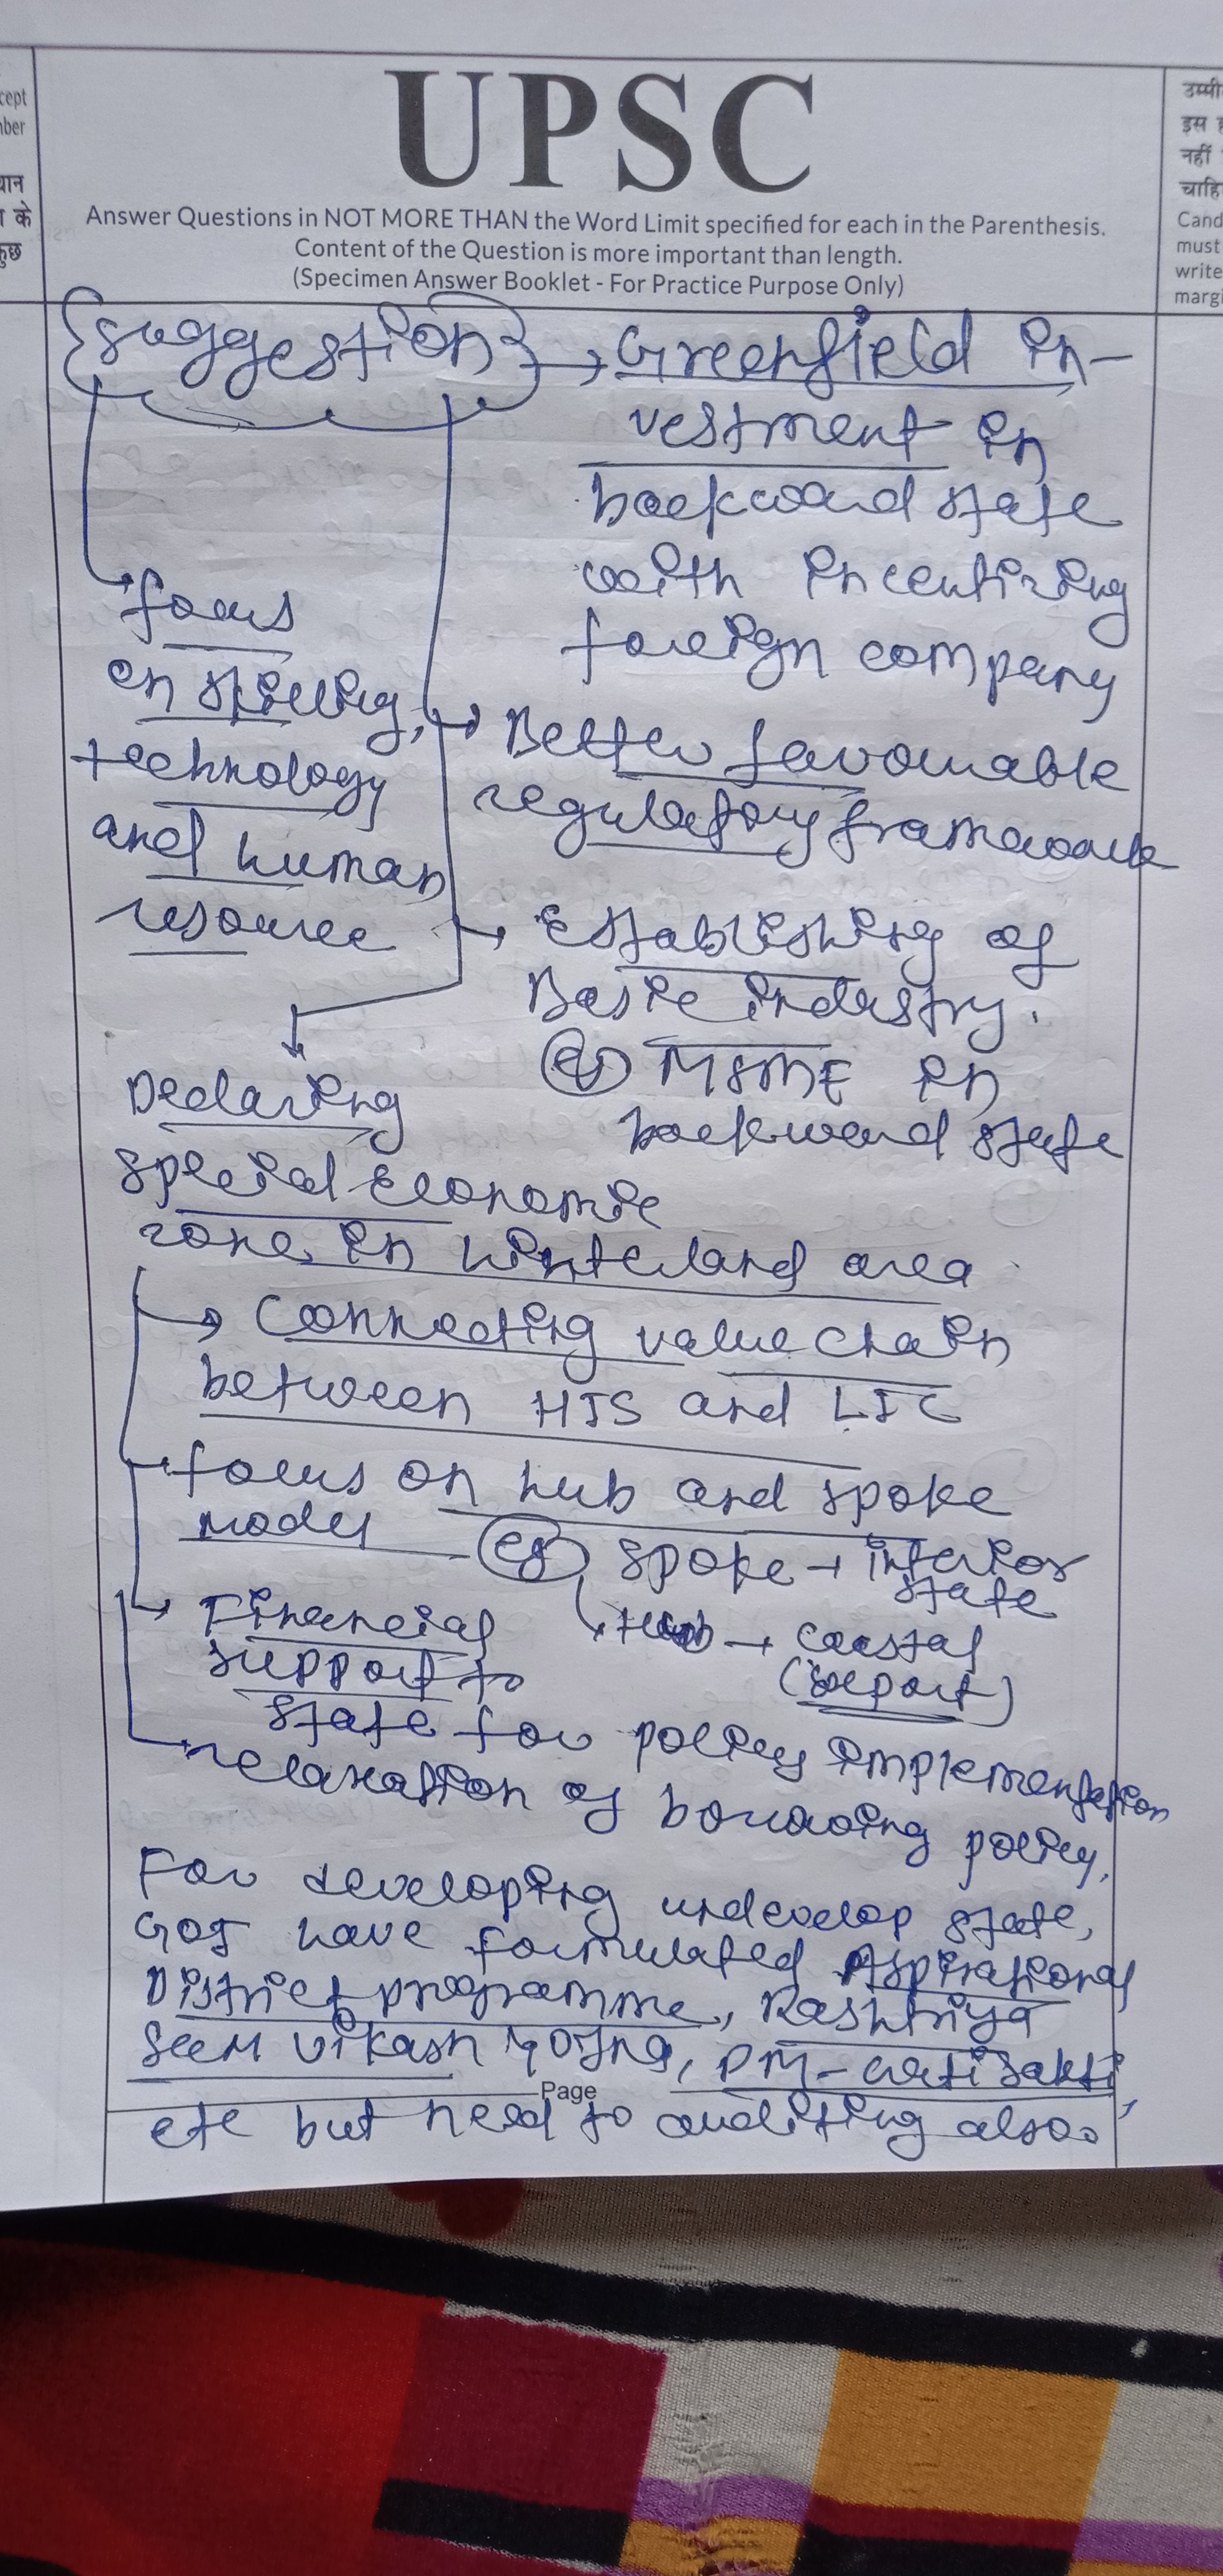 cept
nber
यान
ा के
कुछ
UPSC
Answer Questions in NOT MORE THAN the Word Limit specified for each in the Parenthesis.
Content of the Question is more important than length.
(Specimen Answer Booklet - For Practice Purpose Only)
उम्मी
इस ह
नहीं
चाहि
Cand
must
write
margi
{Suggestion} → Greenfield in-
vestment in
backward state
with incentizing
foreign company
→ focus
on skilling,
technology
and human
resource
→ Better favourable
regulatory framework
→ Establishing of
Basic industry.
eg MSME in
backward state
Declaring
special Economic
zone in hinterland area
→ Connecting value chain
between HIS and LIC
→ focus on hub and spoke
model eg spoke → interior
state
→ Hub → coastal
(seaport)
→ Financial
support to
state for policy implementation
→ relaxation of borrowing policy.
For developing undevelop state,
GOI have formulated Aspirational
District programme, Rashtriya
Seem Vikash Yojna, PM-Gati Sakti,
Page
etc but need to auditing also.